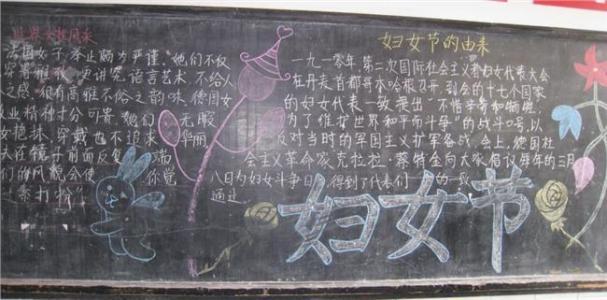 世界女性风采
法国女子,举止颇为严谨。她们不仅
穿着雅致,更讲究语言艺术,不给人
之感,很有高雅不俗之韵味。德国女
业精神十分可贵。她们无暇
女艳抹,穿戴也不追求华丽,
夫在镜子前面反复端
们的风貌会使你觉
素打扮。
妇女节的由来
一九一零年第二次国际社会主义者妇女代表大会
在丹麦首都哥本哈根召开,到会的十七个国家
的妇女代表一致提出“不惜辛劳和牺牲,
为了维护世界和平而斗争”的战斗口号,以
反对当时的军国主义扩军备战。会上,德国社
会主义革命家克拉拉·蔡特金向大家倡议每年的三月
八日为妇女斗争日,得到了代表们的一致
通过。
妇女节